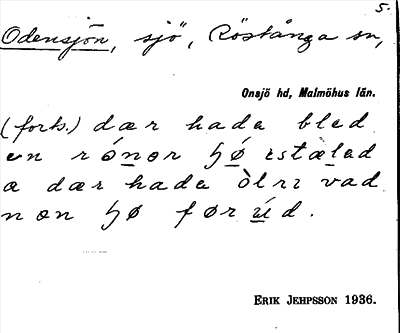 5.
Odensjön, sjö, Röstånga sn,
Onsjö hd, Malmöhus län.
(forts.) dær hade bled
en rónor ꜧǿ istæled
a dær hade òlrɪ vad
non ꜧø før úd.
ERIK JEHPSSON 1936.